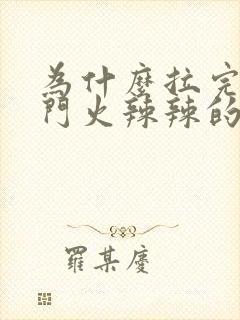 為什麼拉完
門火辣辣的
羅某慶